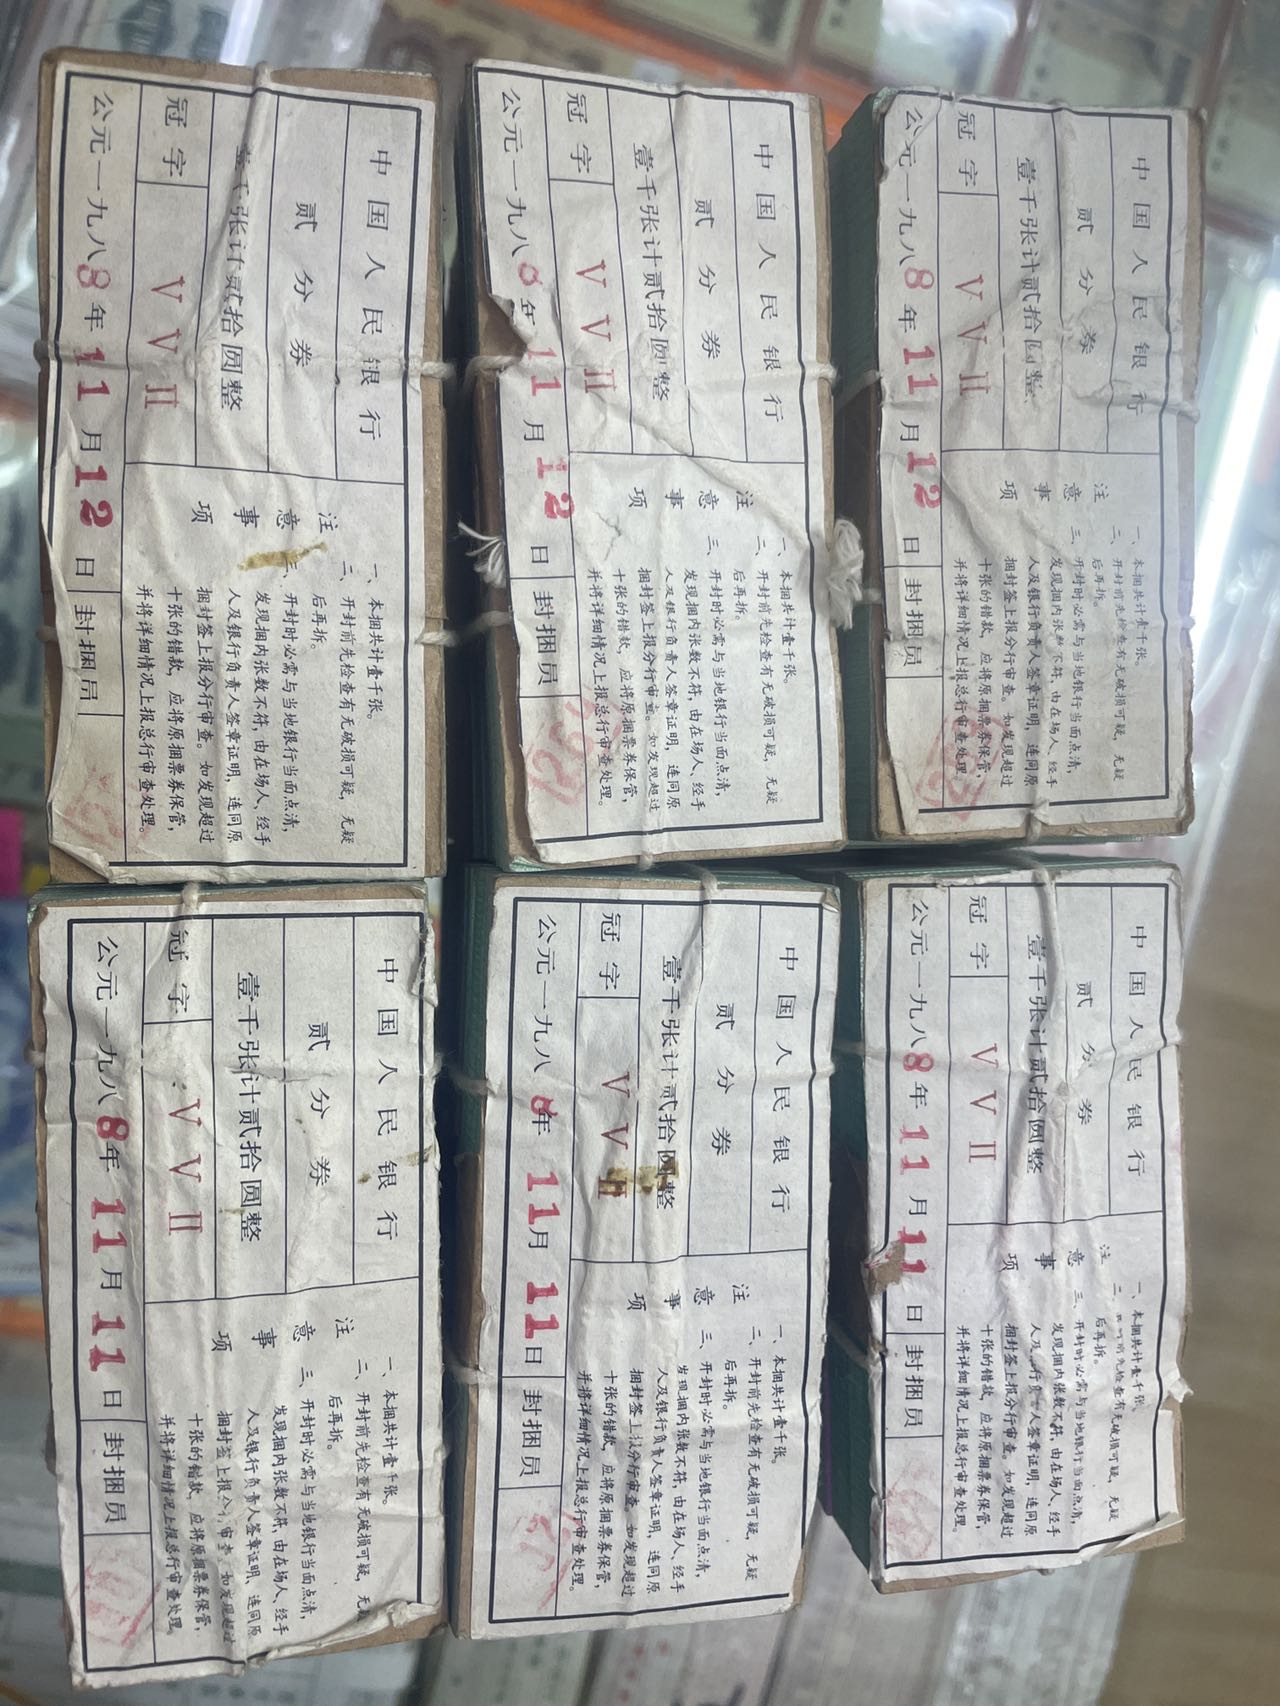 中国人民银行
贰分券
壹千张计贰拾圆整
冠字 V V II
注意事项
一、本捆共计壹千张。
二、开封前先检查有无破损可疑，无疑
后再拆。
三、开封时必需与当地银行当面点清，
发现捆内张数不符，由在场人、经手
人及银行负责人签章证明，连同原
捆封签上报分行审查。如发现超过
十张的错款，应将原捆票券保管，
并将详细情况上报总行审查处理。
公元一九八8年11月12日 封捆员
中国人民银行
贰分券
壹千张计贰拾圆整
冠字 V V II
注意事项
一、本捆共计壹千张。
二、开封前先检查有无破损可疑，无疑
后再拆。
三、开封时必需与当地银行当面点清，
发现捆内张数不符，由在场人、经手
人及银行负责人签章证明，连同原
捆封签上报分行审查。如发现超过
十张的错款，应将原捆票券保管，
并将详细情况上报总行审查处理。
公元一九八8年11月12日 封捆员
中国人民银行
贰分券
壹千张计贰拾圆整
冠字 V V II
注意事项
一、本捆共计壹千张。
二、开封前先检查有无破损可疑，无疑
后再拆。
三、开封时必需与当地银行当面点清，
发现捆内张数不符，由在场人、经手
人及银行负责人签章证明，连同原
捆封签上报分行审查。如发现超过
十张的错款，应将原捆票券保管，
并将详细情况上报总行审查处理。
公元一九八8年11月12日 封捆员
中国人民银行
贰分券
壹千张计贰拾圆整
冠字 V V II
注意事项
一、本捆共计壹千张。
二、开封前先检查有无破损可疑，无疑
后再拆。
三、开封时必需与当地银行当面点清，
发现捆内张数不符，由在场人、经手
人及银行负责人签章证明、连同原
捆封签上报分行审查。如发现超过
十张的错款，应将原捆票券保管，
并将详细情况上报总行审查处理
公元一九八8年11月11日 封捆员
中国人民银行
贰分券
壹千张计贰拾圆整
冠字 V V II
注意事项
一、本捆共计壹千张。
二、开封前先检查有无破损可疑，无疑
后再拆。
三、开封时必需与当地银行当面点清，
发现捆内张数不符，由在场人、经手
人及银行负责人签章证明，连同原
捆封签上报分行审查。如发现超过
十张的错款，应将原捆票券保管，
并将详细情况上报总行审查处理。
公元一九八8年11月11日 封捆员
中国人民银行
贰分券
壹千张计贰拾圆整
冠字 V V II
注意事项
一、本捆共计壹千张
二、开封前先检查有无破损可疑，无疑
后再拆。
三、开封时必需与当地银行当面点清，
发现捆内张数不符，由在场人、经手
人及银行负责人签章证明，连同原
捆封签上报分行审查。如发现超过
十张的错款，应将原捆票券保管，
并将详细情况上报总行审查处理。
公元一九八8年11月11日 封捆员